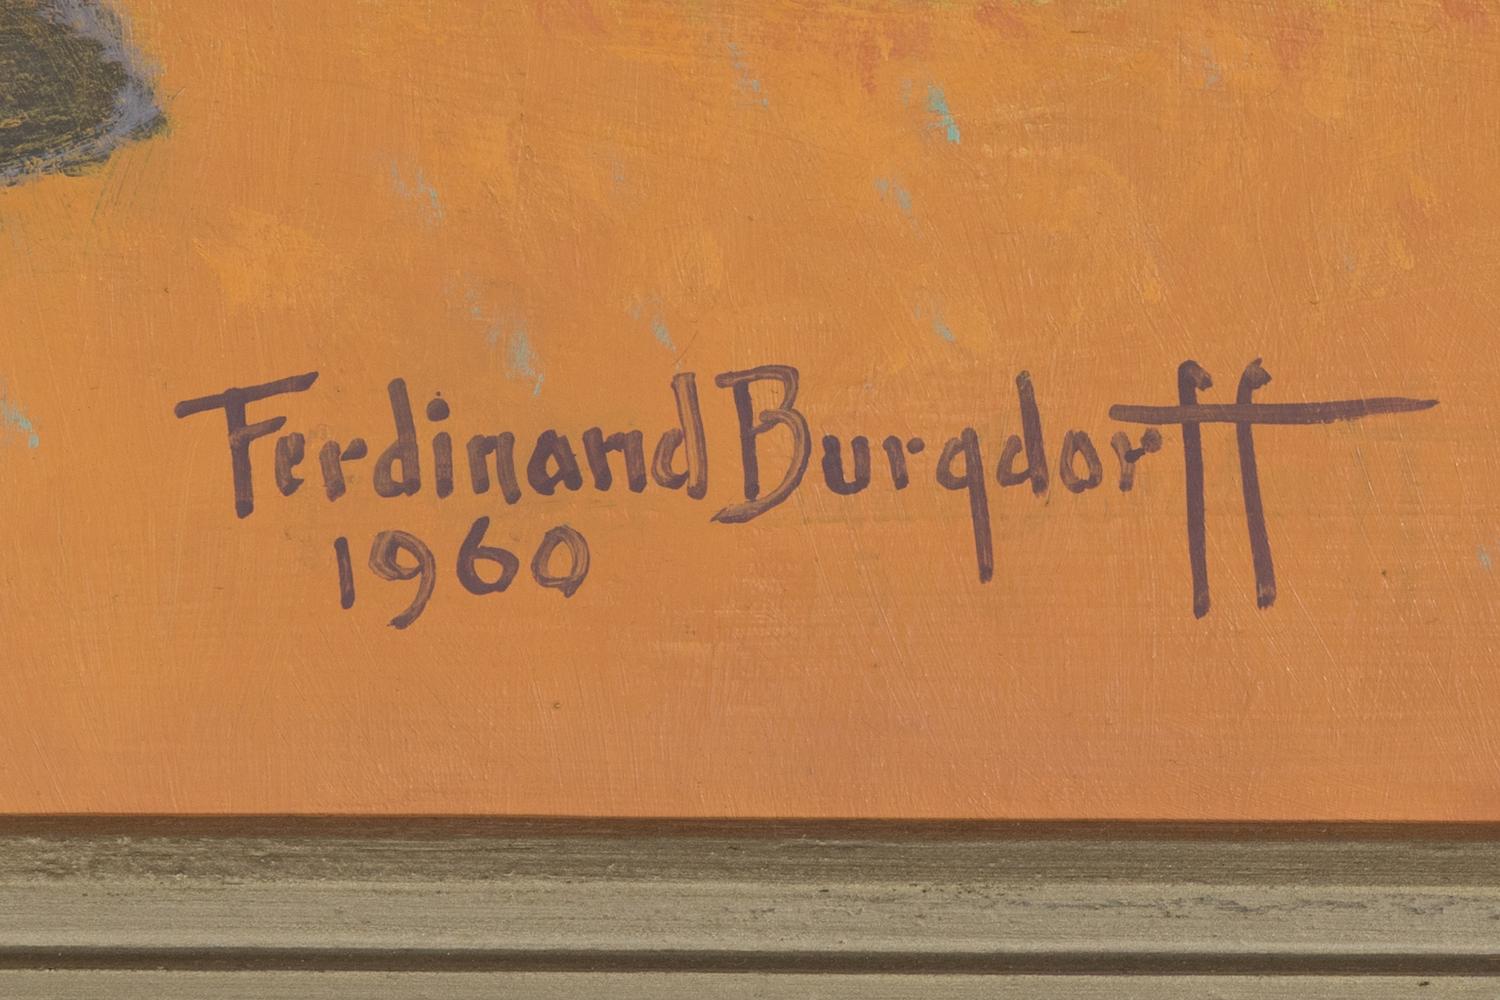 Ferdinand Burgdorff
1960